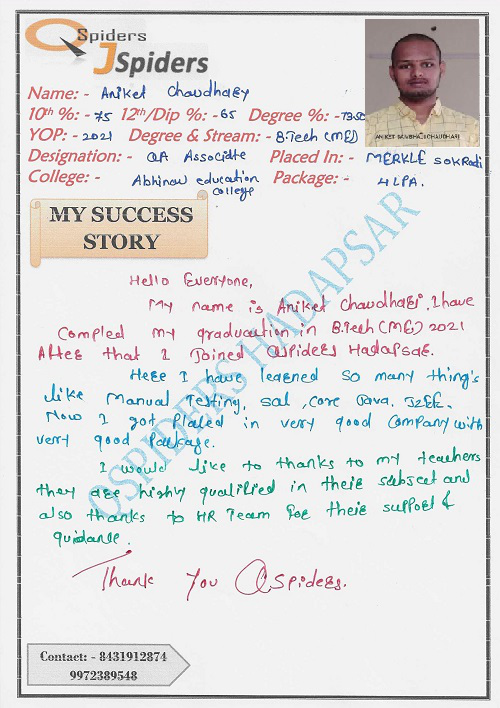 QSpiders
JSpiders
Name: - Aniket Chaudhary
10th %: - 75 12th/Dip %: - 65 Degree %: - 73.50
YOP: - 2021 Degree & Stream: - B.Tech (ME)
Designation: - QA Associate Placed In: - MERKLE sokRadi
College: - Abhinav education college Package: - 4LPA.
ANIKET CHAUDHARI
MY SUCCESS
STORY
Hello Everyone,
My name is Aniket Chaudhari. I have
Compled my graducation in B.Tech (ME) 2021
After that I Joined QSpiders Hadapsar.
Here I have learned so many thing's
like Manual Testing, sql, core Java, J2EE.
Now I got Placed in very good Company with
very good Package.
I would like to thanks to my teachers
they are highly qualified in their subject and
also thanks to HR Team for their support &
guidance.
Thank You QSpiders.
QSPIDERS HADAPSAR
Contact: - 8431912874
9972389548